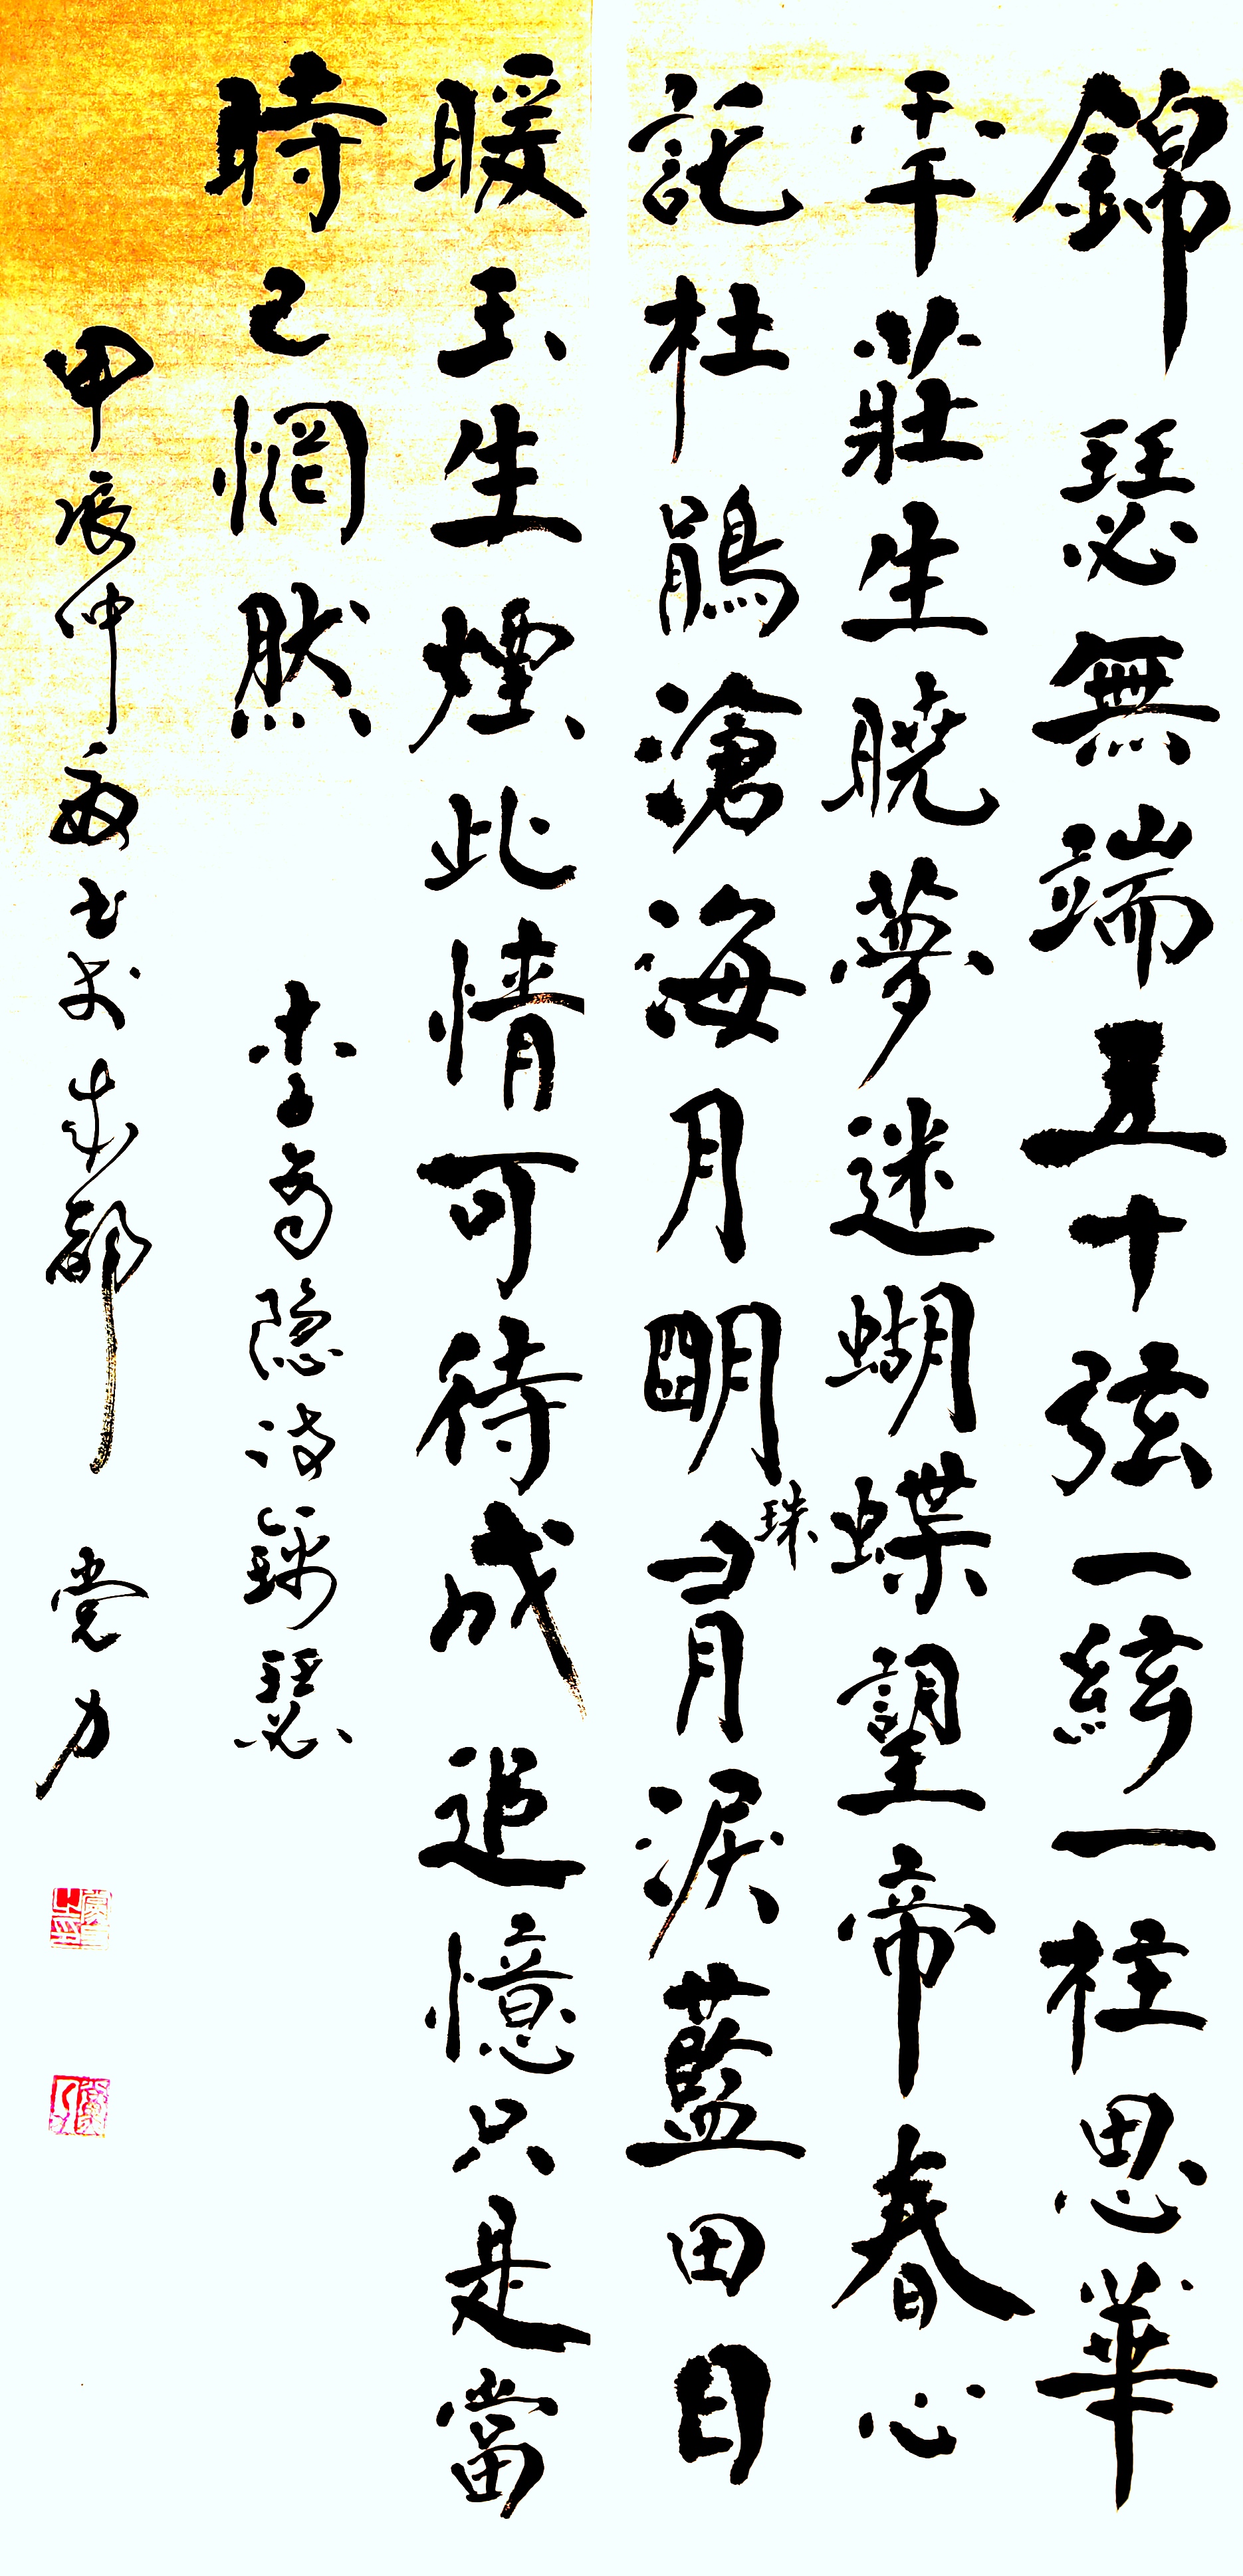 錦瑟無端五十弦一絃一柱思華
年莊生曉夢迷蝴蝶望帝春心
託杜鵑滄海月明珠有淚藍田日
暖玉生煙此情可待成追憶只是當
時已惘然 李商隐诗錦瑟
甲辰仲夏书於成都 党力